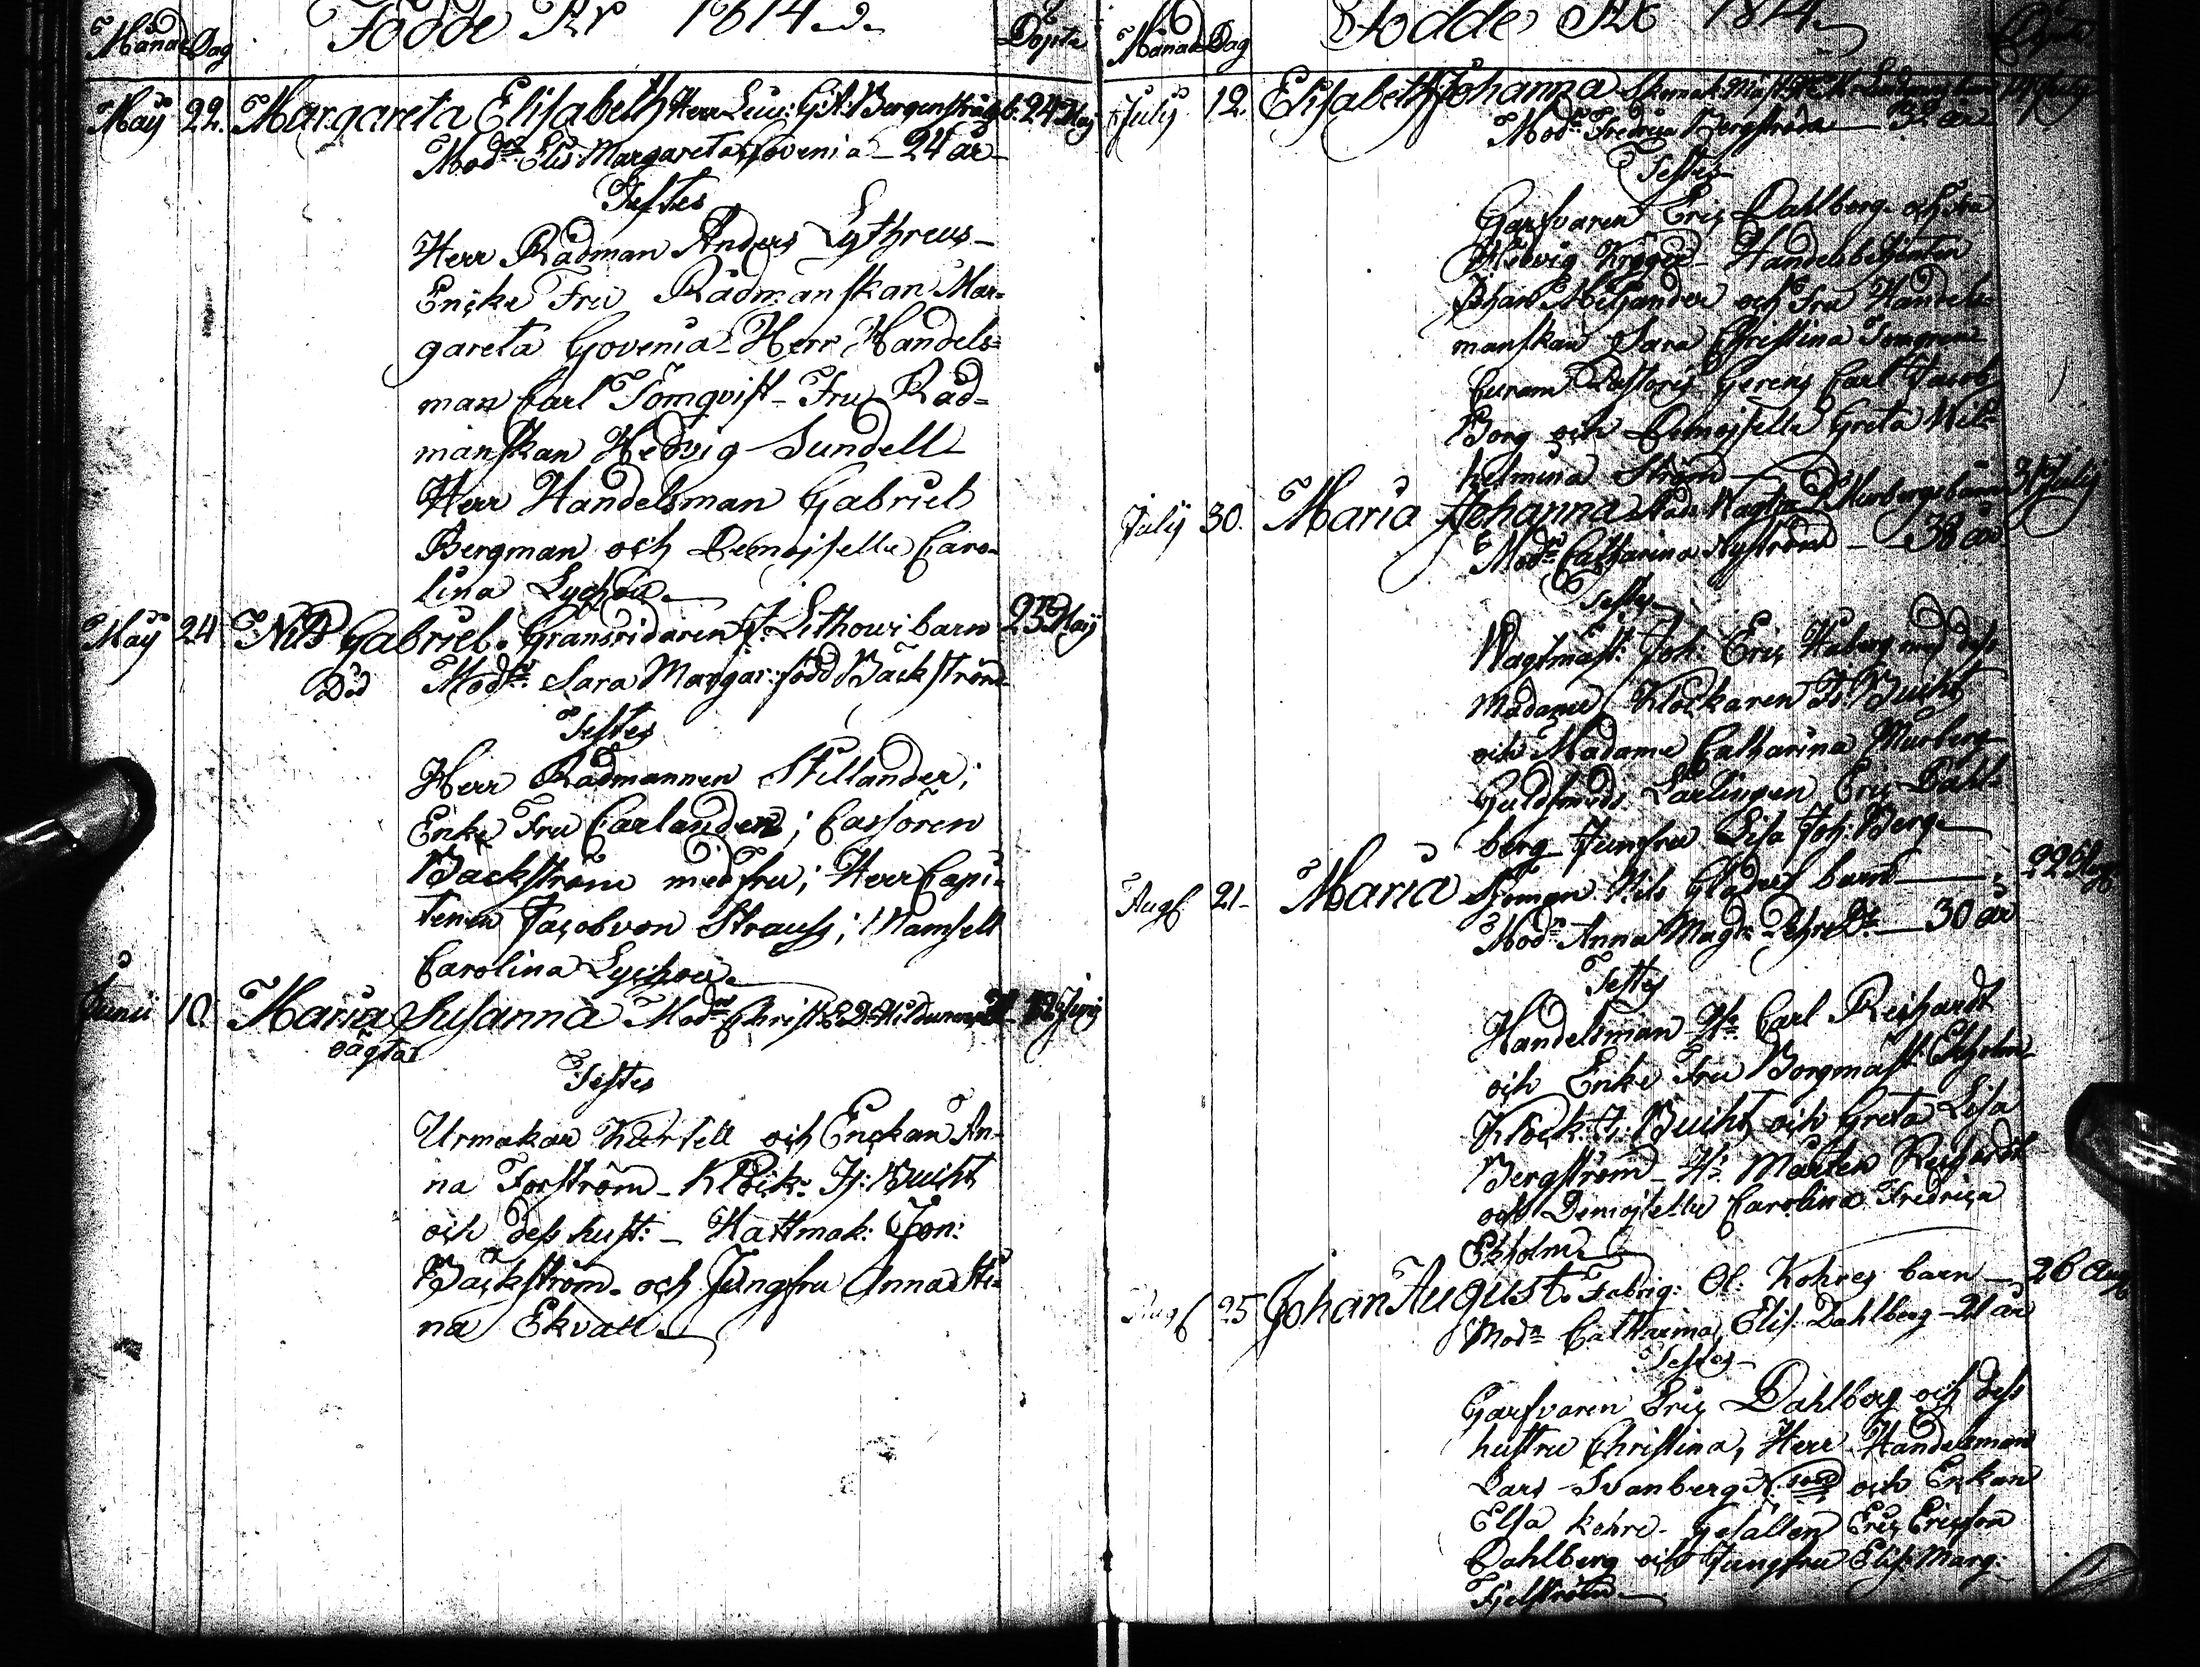 Månad Dag Födde År 1814. Döpte
May 22. Margareta Elisabeth Herr G: A: Bergenstråhles b: 24 May
Modn Elis Margareta Govenia - 24 år
Testes
Herr Rådman Anders Lythreus -
Enke Fru Rådmanskan Mar-
gareta Govenia - Herr Handels-
man Carl Törnqvist - Fru Råd-
manskan Hedvig Sundell
Herr Handelsman Gabriel
Bergman och Demoiselle Caro-
lina Lychou
May 24 Nils Gabriel. Gränsridaren J: Lithovii barn 25 May
Död Modn: Sara Margar: född Bäckström
Testes
Herr Rådmannen Stillander;
Enke Fru Carlander; Cassören
Bäckström med fru; Herr Capi-
tenen Jacob von Strauss; Mamsell
Carolina Lychou
Junii 10. Maria Susanna Modn Christ: 12 Junij
oägta
Testes
Urmakar Kartell och Enckan An-
na Forström - Klock: Js: Bucht
och dess hust: - Hattmak: Jon:
Bäckström - och Jungfru Anna Sti-
na Ekvall
Månad Dag Födde År 1814 Döpte
July 12. Elisabeth Johanna 14 July
Modn Fredrica Bergström - 32 år
Testes
Garfvaren Eric Dahlberg och Fru
Hedvig Kröger - Handelsbetjenten
Johan Milander och Fru Handels-
manskan Sara Christina
Curam Pastoris Gerens Carl Jacob
Borg och Demoiselle Greta Wil-
helmina Ström
July 30. Maria Johanna Murbergs barn 31 July
Modn Catharina Nyström - 38 år
Testes
Wagtmäst: Joh: Eric Waberg med dess
Madame Klockaren Is: Bucht
och Madame Catharina Murberg
Guldsmeds Lärlingen Eric Dahl-
berg Jungfru Lisa Joh: Berg
Augs 21 - Maria Sjöman Nils Gladers barn 22 Aug
Modn Anna Magn: - 30 år
Testes
Handelsman Hr Carl Reichardt
och Enke Fru Borgmäst: Ekholm
Klock: I: Bucht och Greta Lisa
Bergström - Hr Mårten Reichardt
och Demoiselle Carolina Fredrica
Ekholm
Augs 25 Johan August. Fabriq: Ol: Kohres barn - 26 Aug
Modn Catharina Elis: Dahlberg - 21 år
Testes
Garfvaren Eric Dahlberg och dess
hustru Christina, Herr Handelsman
Lars Svanberg och Enkan
Elsa Kohre - Gesällen Eric Ericsson
Dahlberg och Jungfru Elis: Marg:
Fjelström